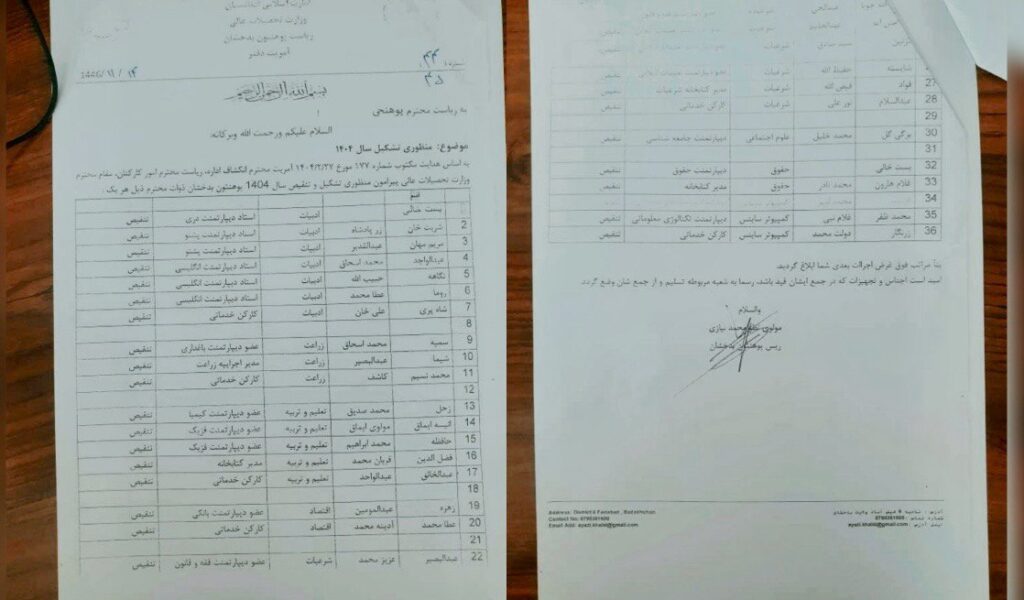 امارت اسلامی افغانستان
وزارت تحصیلات عالی
ریاست پوهنتون بدخشان
آمریت دفتر
1446/11/14
۴۴
۴۵
بسم الله الرحمن الرحیم
به ریاست محترم پوهنحی
السلام علیکم ورحمت الله وبرکاته:
موضوع: منظوری تشکیل سال ۱۴۰۴
به اساس هدایت مکتوب شماره ۱۳۷ مورخ ۱۴۰۴/۲/۲۷ آمریت محترم انکشاف اداره، ریاست محترم امور کارکنان، مقام محترم
وزارت تحصیلات عالی پیرامون منظوری تشکیل و تنقیص سال 1404 پوهنتون بدخشان ذوات محترم ذیل هر یک:
بست خالی ادبیات استاد دیپارتمنت دری تنقیص
2 شربت خان زر پادشاه ادبیات استاد دیپارتمنت پشتو تنقیص
3 مریم مهان عبدالقدیر ادبیات استاد دیپارتمنت پشتو تنقیص
4 عبدالواجد محمد اسحاق ادبیات استاد دیپارتمنت انگلیسی تنقیص
5 نگاهه حبیب الله ادبیات استاد دیپارتمنت انگلیسی تنقیص
6 روما عطا محمد ادبیات استاد دیپارتمنت انگلیسی تنقیص
7 شاه پری علی خان ادبیات کارکن خدماتی تنقیص
8
9 سمیه محمد اسحاق زراعت عضو دیپارتمنت باغداری تنقیص
10 شیما عبدالبصیر زراعت مدیر اجراییه زراعت تنقیص
11 محمد نسیم کاشف زراعت کارکن خدماتی تنقیص
12
13 زحل محمد صدیق تعلیم و تربیه عضو دیپارتمنت کیمیا تنقیص
14 انیسه ایماق مولوی ایماق تعلیم و تربیه عضو دیپارتمنت فزیک تنقیص
15 حافظه محمد ابراهیم تعلیم و تربیه عضو دیپارتمنت فزیک تنقیص
16 فضل الدین قربان محمد تعلیم و تربیه مدیر کتابخانه تنقیص
17 عبدالخالق عبدالواحد تعلیم و تربیه کارکن خدماتی تنقیص
18
19 زهره عبدالمومین اقتصاد عضو دیپارتمنت بانکی تنقیص
20 عطا محمد آدینه محمد اقتصاد کارکن خدماتی تنقیص
21
22 عبدالبصیر عزیز محمد شرعیات عضو دیپارتمنت فقه و قانون تنقیص
عبدالحی شرعیات تنقیص
عبدالعظیم شرعیات تنقیص
سید صادق شرعیات تنقیص
شایسته حفیظ الله شرعیات تنقیص
27 فواد فیض الله شرعیات مدیر کتابخانه شرعیات تنقیص
28 عبدالسلام نور علی شرعیات کارکن خدماتی تنقیص
30 برگی گل محمد خلیل علوم اجتماعی دیپارتمنت جامعه شناسی تنقیص
32 بست خالی حقوق دیپارتمنت حقوق تنقیص
33 غلام هارون محمد نادر حقوق مدیر کتابخانه تنقیص
34
35 محمد ظفر غلام نبی کمپیوتر ساینس دیپارتمنت تکنالوژی معلوماتی تنقیص
36 زرنگار دولت محمد کمپیوتر ساینس کارکن خدماتی تنقیص
بنأ مراتب فوق غرض اجراات بعدی شما ابلاغ گردید.
امید است اجناس و تجهیزات که در جمع ایشان قید باشد، رسما به شعبه مربوطه تسلیم و از جمع شان وضع گردد.
والسلام
مولوی محمد نیازی
ریس پوهنتون بدخشان
Address: District 6 Faizabad , Badakhshan
Contact No: 0790361600
Email Add: ayazi.khalid@gmail.com